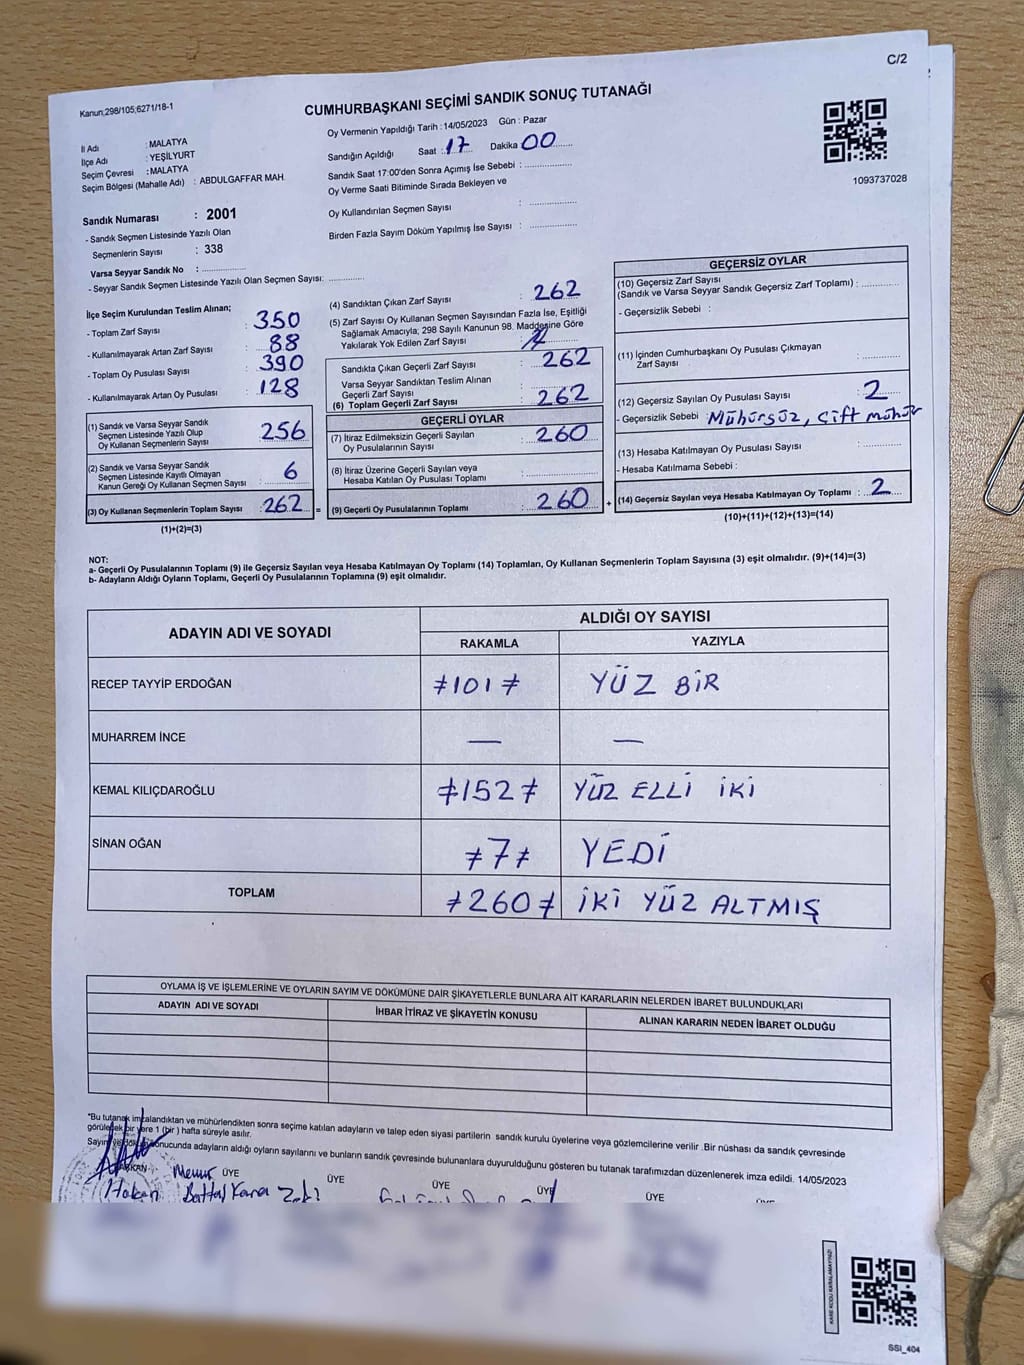 C/2
Kanun;298/105;6271/18-1
CUMHURBAŞKANI SEÇİMİ SANDIK SONUÇ TUTANAĞI
İl Adı : MALATYA
İlçe Adı : YEŞİLYURT
Seçim Çevresi : MALATYA
Seçim Bölgesi (Mahalle Adı) : ABDULGAFFAR MAH.
Oy Vermenin Yapıldığı Tarih : 14/05/2023 Gün : Pazar
Sandığın Açıldığı Saat : 17 Dakika 00
Sandık Saat 17:00'den Sonra Açımış İse Sebebi :
Oy Verme Saati Bitiminde Sırada Bekleyen ve
Oy Kullandırılan Seçmen Sayısı :
Birden Fazla Sayım Döküm Yapılmış İse Sayısı :
1093737028
Sandık Numarası : 2001
- Sandık Seçmen Listesinde Yazılı Olan
Seçmenlerin Sayısı : 338
Varsa Seyyar Sandık No :
- Seyyar Sandık Seçmen Listesinde Yazılı Olan Seçmen Sayısı:
İlçe Seçim Kurulundan Teslim Alınan;
- Toplam Zarf Sayısı : 350
- Kullanılmayarak Artan Zarf Sayısı : 88
- Toplam Oy Pusulası Sayısı : 390
- Kullanılmayarak Artan Oy Pusulası : 128
(1) Sandık ve Varsa Seyyar Sandık
Seçmen Listesinde Yazılı Olup
Oy Kullanan Seçmenlerin Sayısı : 256
(2) Sandık ve Varsa Seyyar Sandık
Seçmen Listesinde Kayıtlı Olmayan
Kanun Gereği Oy Kullanan Seçmen Sayısı : 6
(3) Oy Kullanan Seçmenlerin Toplam Sayısı : 262 =
(1)+(2)=(3)
(4) Sandıktan Çıkan Zarf Sayısı : 262
(5) Zarf Sayısı Oy Kullanan Seçmen Sayısından Fazla İse, Eşitliği
Sağlamak Amacıyla; 298 Sayılı Kanunun 98. Maddesine Göre
Yakılarak Yok Edilen Zarf Sayısı :
Sandıkta Çıkan Geçerli Zarf Sayısı : 262
Varsa Seyyar Sandıktan Teslim Alınan
Geçerli Zarf Sayısı :
(6) Toplam Geçerli Zarf Sayısı : 262
GEÇERLİ OYLAR
(7) İtiraz Edilmeksizin Geçerli Sayılan
Oy Pusulasının Sayısı : 260
(8) İtiraz Üzerine Geçerli Sayılan veya
Hesaba Katılan Oy Pusulası Toplamı :
(9) Geçerli Oy Pusulalarının Toplamı : 260 +
GEÇERSİZ OYLAR
(10) Geçersiz Zarf Sayısı
(Sandık ve Varsa Seyyar Sandık Geçersiz Zarf Toplamı) :
- Geçersizlik Sebebi :
(11) İçinden Cumhurbaşkanı Oy Pusulası Çıkmayan
Zarf Sayısı :
(12) Geçersiz Sayılan Oy Pusulası Sayısı : 2
- Geçersizlik Sebebi : Mühürsüz, çift mühür
(13) Hesaba Katılmayan Oy Pusulası Sayısı :
- Hesaba Katılmama Sebebi :
(14) Geçersiz Sayılan veya Hesaba Katılmayan Oy Toplamı : 2
(10)+(11)+(12)+(13)=(14)
NOT:
a- Geçerli Oy Pusulalarının Toplamı (9) ile Geçersiz Sayılan veya Hesaba Katılmayan Oy Toplamı (14) Toplamları, Oy Kullanan Seçmenlerin Toplam Sayısına (3) eşit olmalıdır. (9)+(14)=(3)
b- Adayların Aldığı Oyların Toplamı, Geçerli Oy Pusulalarının Toplamına (9) eşit olmalıdır.
ADAYIN ADI VE SOYADI ALDIĞI OY SAYISI
RAKAMLA YAZIYLA
RECEP TAYYİP ERDOĞAN ≠101≠ YÜZ BİR
MUHARREM İNCE — —
KEMAL KILIÇDAROĞLU ≠152≠ YÜZ ELLİ İKİ
SİNAN OĞAN ≠7≠ YEDİ
TOPLAM ≠260≠ İKİ YÜZ ALTMIŞ
OYLAMA İŞ VE İŞLEMLERİNE VE OYLARIN SAYIM VE DÖKÜMÜNE DAİR ŞİKAYETLERLE BUNLARA AİT KARARLARIN NELERDEN İBARET BULUNDUKLARI
ADAYIN ADI VE SOYADI İHBAR İTİRAZ VE ŞİKAYETİN KONUSU ALINAN KARARIN NEDEN İBARET OLDUĞU
*Bu tutanak imzalandıktan ve mühürlendikten sonra seçime katılan adayların ve talep eden siyasi partilerin sandık kurulu üyelerine veya gözlemcilerine verilir .Bir nüshası da sandık çevresinde
görülecek bir yere 1 (bir ) hafta süreyle asılır.
Sayım sonucunda adayların aldığı oyların sayılarını ve bunların sandık çevresinde bulunanlara duyurulduğunu gösteren bu tutanak tarafımızdan düzenlenerek imza edildi. 14/05/2023
BAŞKAN Memur ÜYE ÜYE ÜYE ÜYE ÜYE
Hakan
KARE KODU KARALAMAYINIZ!
SSI_404